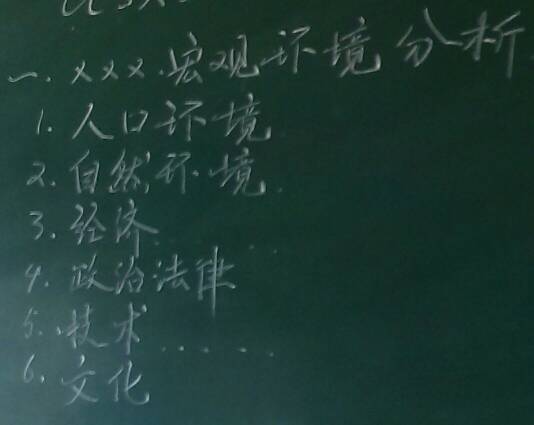 一. ×××.宏观环境分析
1. 人口环境
2. 自然环境.
3. 经济......
4. 政治法律
5. 技术......
6. 文化